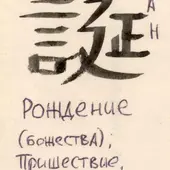 誕
АН
Рождение
(божества);
Пришествие,